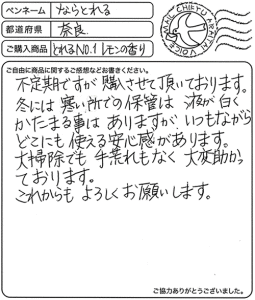 ペンネーム ならとれる
都道府県 奈良
ご購入商品 とれるNO.1 レモンの香り
CHIERU ARIGATAI VOICE MAIL
ご自由に商品に関するご感想などお書きください。
不定期ですが購入させて頂いております。
冬には寒い所での保管は液が白く
かたまる事はありますが、いつもながら
どこにも使える安心感があります。
大掃除でも手荒れもなく大変助かっ
ております。
これからもよろしくお願いします。
ご協力ありがとうございました。